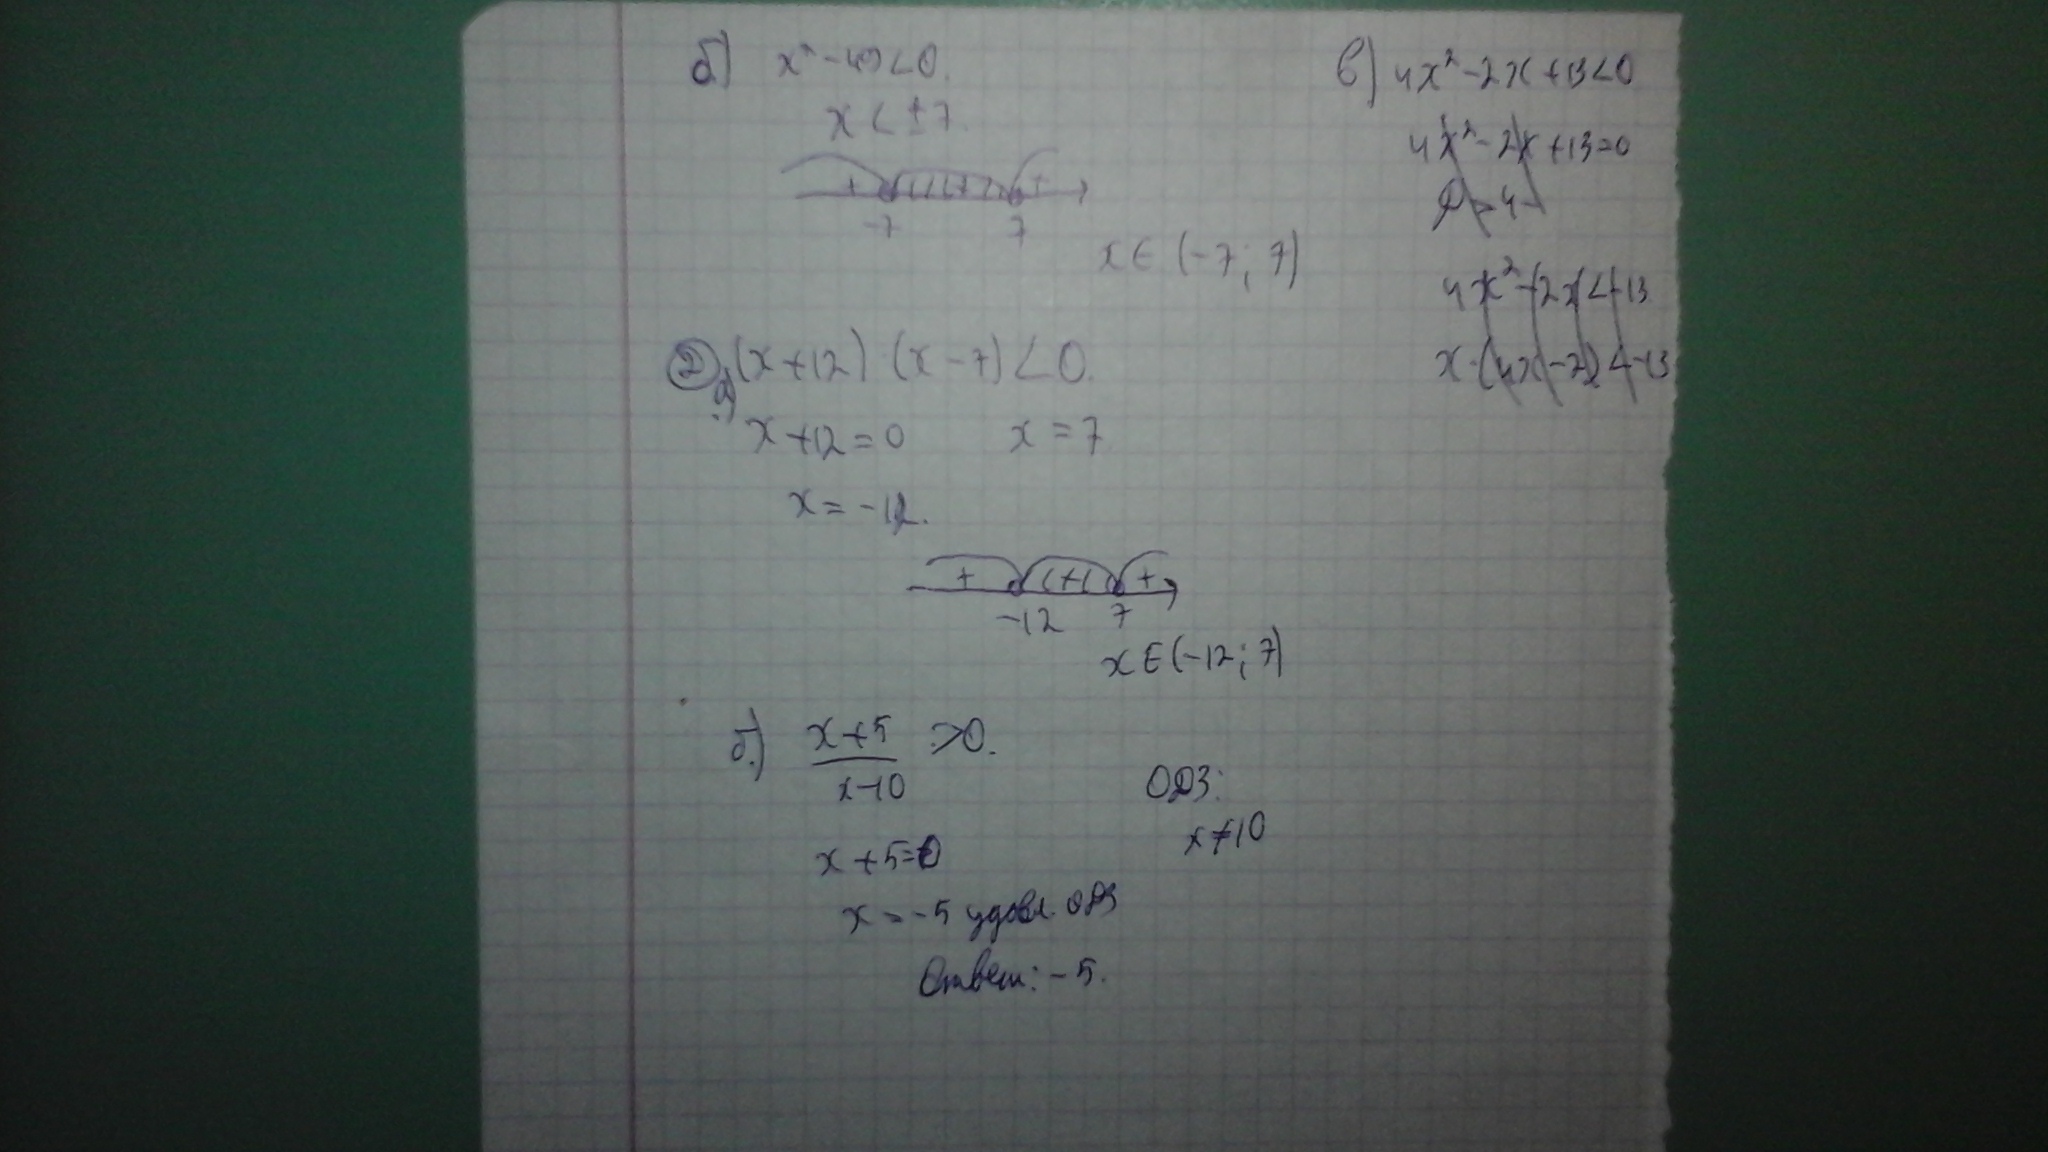 б) x² - 49 < 0.
x < ± 7.
+ + +
-7 7
x ∈ (-7; 7)
в) 4x² - 2x + 13 < 0
4x² - 2x + 13 = 0
D = 4 -
4x² - 2x < -13
x · (4x - 2) < -13
② а) (x + 12) (x - 7) < 0.
x + 12 = 0 x = 7
x = -12.
+ + +
-12 7
x ∈ (-12; 7)
б.) x + 5 / x - 10 > 0.
ОДЗ:
x ≠ 10
x + 5 = 0
x = -5 удовл. ОДЗ
Ответ: -5.